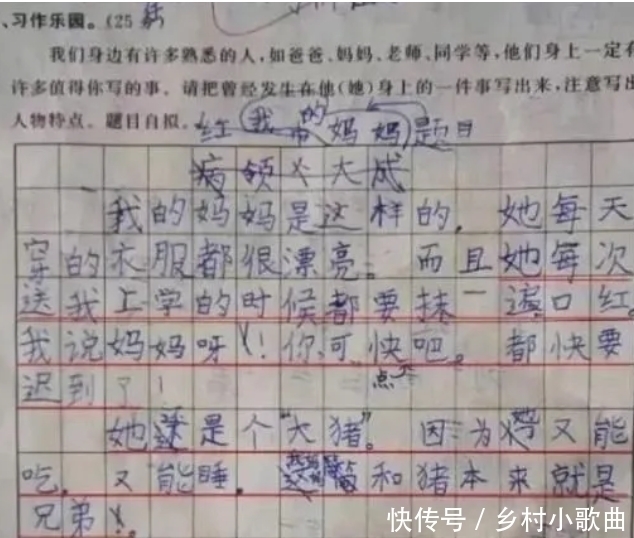 、习作乐园。(25
我们身边有许多熟悉的人,如爸爸、妈妈、老师、同学等,他们身上一定有
许多值得你写的事。请把曾经发生在他(她)身上的一件事写出来,注意写出
人物特点。题目自拟。
我的妈妈 题目
大成
我的妈妈是这样的。她每天
穿的衣服都很漂亮。而且她每次
送我上学的时候都要抹一遍口红。
我说妈妈呀!你可快点吧。都快要
迟到了!
她还是个“大猪”。因为又能
吃。又能睡。和猪本来就是
兄弟
快传号/乡村小歌曲